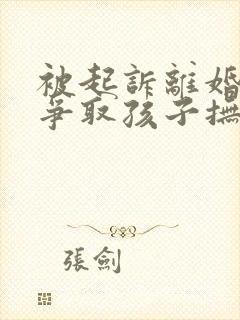 被起訴離婚
爭取孩子撫
張劍